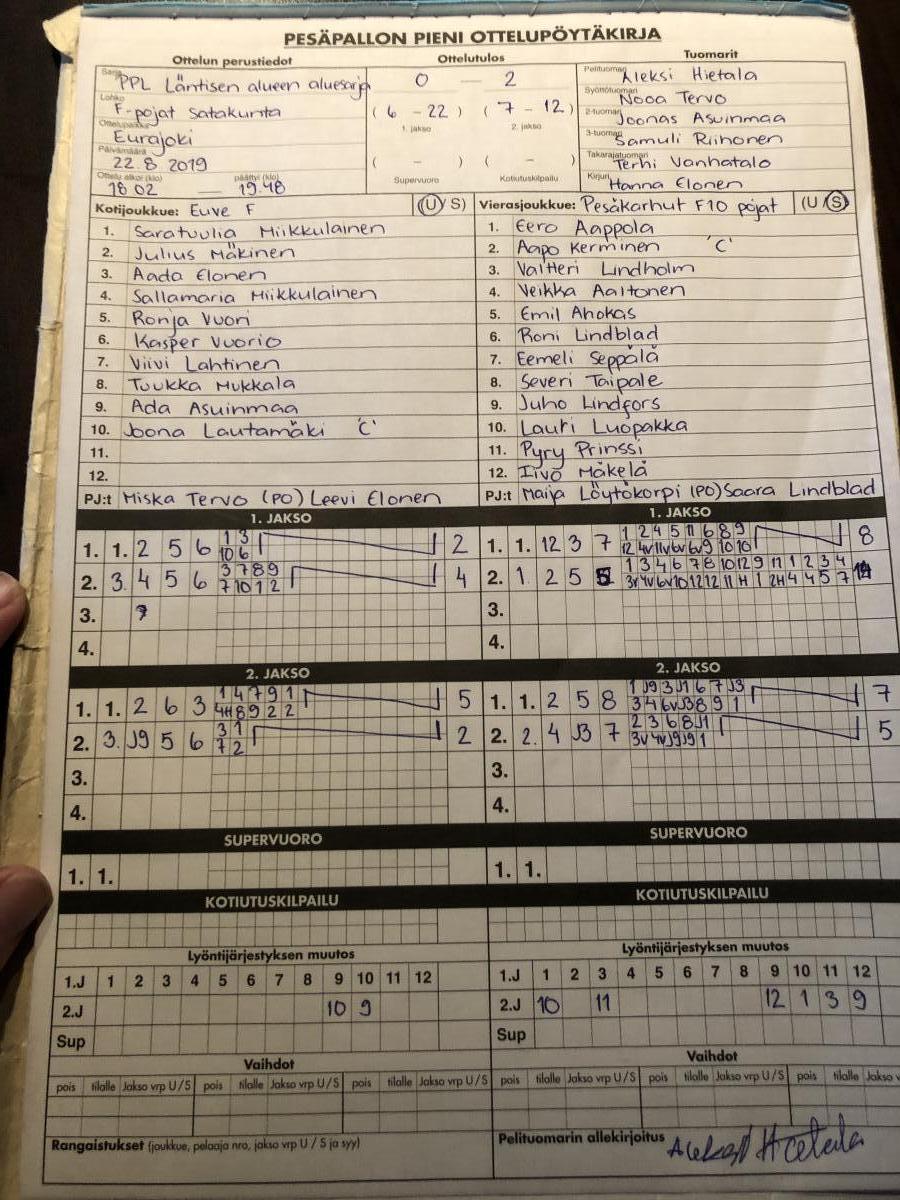 PESÄPALLON PIENI OTTELUPÖYTÄKIRJA
Ottelun perustiedot Ottelutulos Tuomarit
Sarja PPL Läntisen alueen aluesarja
0 — 2
Pelituomari Aleksi Hietala
Syöttötuomari Nooa Tervo
Lohko F-pojat Satakunta
( 6 - 22 ) ( 7 - 12 )
1. jakso 2. jakso
2-tuomari Joonas Asuinmaa
Ottelupaikka Eurajoki
3-tuomari Samuli Riihonen
Päivämäärä 22.8 2019
( - ) ( - )
Supervuoro Kotiutuskilpailu
Takarajatuomari Terhi Vanhatalo
Ottelu alkoi (klo) 18 02 — päättyi (klo) 19.48
Kirjuri Hanna Elonen
Kotijoukkue: Euve F (U / S) Vierasjoukkue: Pesäkarhut F10 pojat (U / S)
1. Saratuulia Miikkulainen 1. Eero Aappola
2. Julius Mäkinen 2. Aapo Kerminen 'C'
3. Aada Elonen 3. Valtteri Lindholm
4. Sallamaria Miikkulainen 4. Veikka Aaltonen
5. Ronja Vuori 5. Emil Ahokas
6. Kasper Vuorio 6. Roni Lindblad
7. Viivi Lahtinen 7. Eemeli Seppälä
8. Tuukka Mukkala 8. Severi Taipale
9. Ada Asuinmaa 9. Juho Lindfors
10. Joona Lautamäki 'C' 10. Lauri Luopakka
11. 11. Pyry Prinssi
12. 12. Iivo Mäkelä
PJ:t Miska Tervo (PO) Leevi Elonen PJ:t Maija Löytökorpi (PO) Saara Lindblad
1. JAKSO 1. JAKSO
1. 1. 2 5 6 1 3 2 1. 1. 12 3 7 1 2 4 5 11 6 8 9 8
10 6 12 4v 11v 6v 6v 9 10 10
2. 3. 4 5 6 3 7 8 9 4 2. 1. 2 5 1 3 4 6 7 8 10 12 9 11 1 2 3 4 14
7 10 1 2 3v 4v 6v 10 12 12 11 H 1 2H 4 4 5 7
3. 7 3.
4. 4.
2. JAKSO 2. JAKSO
1. 1. 2 6 3 1 4 7 9 1 5 1. 1. 2 5 8 1 J9 3 J1 6 7 J3 7
4H 8 9 2 2 3 4 6v J3 8 9 1
2. 3. J9 5 6 3 1 2 2. 2. 4 J3 7 2 3 6 8 J1 5
7 2 3v 4v J9 J9 1
3. 3.
4. 4.
SUPERVUORO SUPERVUORO
1. 1. 1. 1.
KOTIUTUSKILPAILU KOTIUTUSKILPAILU
Lyöntijärjestyksen muutos Lyöntijärjestyksen muutos
1.J 1 2 3 4 5 6 7 8 9 10 11 12 1.J 1 2 3 4 5 6 7 8 9 10 11 12
2.J 10 9 2.J 10 11 12 1 3 9
Sup Sup
Vaihdot Vaihdot
pois tilalle Jakso vrp U/S pois tilalle Jakso vrp U/S pois tilalle Jakso vrp U/S pois tilalle Jakso vrp U/S pois tilalle Jakso vrp U/S pois tilalle Jakso v
Rangaistukset (joukkue, pelaaja nro, jakso vrp U / S ja syy) Pelituomarin allekirjoitus Aleksi Hietala